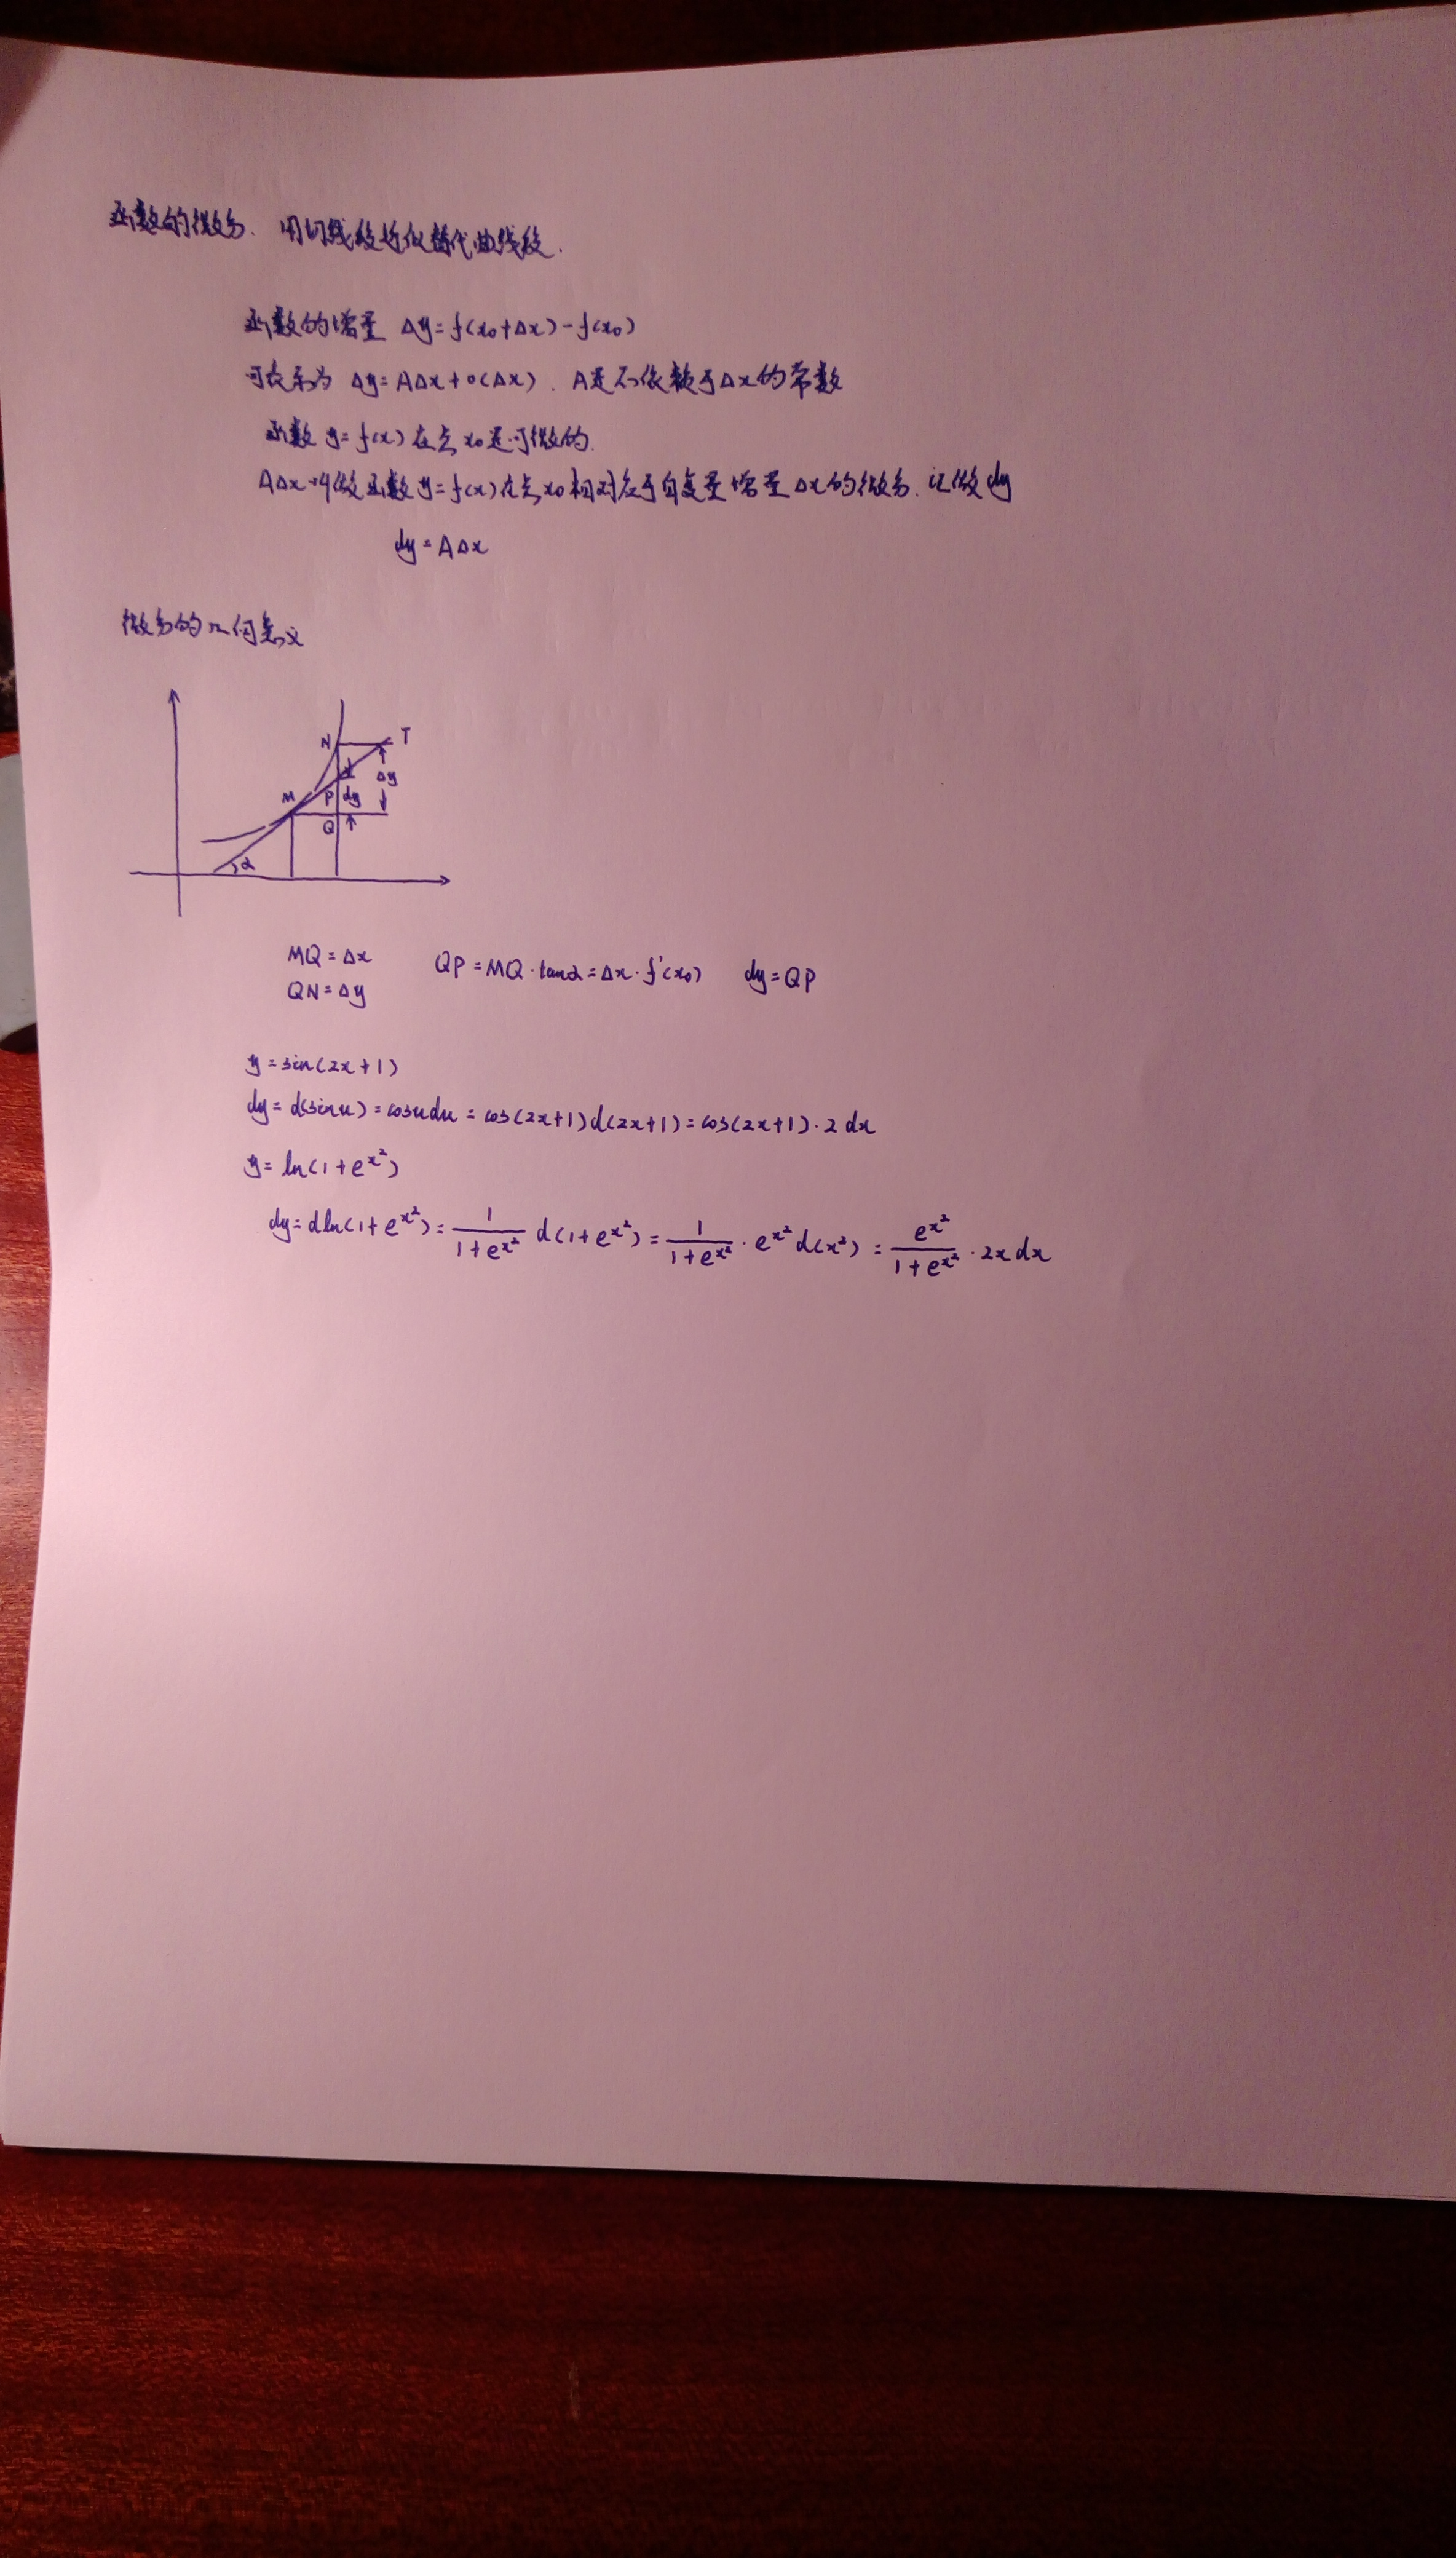 函数的微分. 用切线段近似替代曲线段.
函数的增量 Δy=f(x₀+Δx)-f(x₀)
可表示为 Δy=AΔx+o(Δx). A是不依赖于Δx的常数
函数 y=f(x)在点x₀是可微的.
AΔx叫做函数y=f(x)在点x₀相对应于自变量增量Δx的微分.记做dy
dy=AΔx
微分的几何意义
N T
Δy
M P dy
Q
α
MQ=Δx QP=MQ·tanα=Δx·f'(x₀) dy=QP
QN=Δy
y=sin(2x+1)
dy=d(sinu)=cosudu=cos(2x+1)d(2x+1)=cos(2x+1)·2dx
y=ln(1+e^{x²})
dy=dln(1+e^{x²})=\frac{1}{1+e^{x²}}d(1+e^{x²})=\frac{1}{1+e^{x²}}·e^{x²}d(x²)=\frac{e^{x²}}{1+e^{x²}}·2xdx